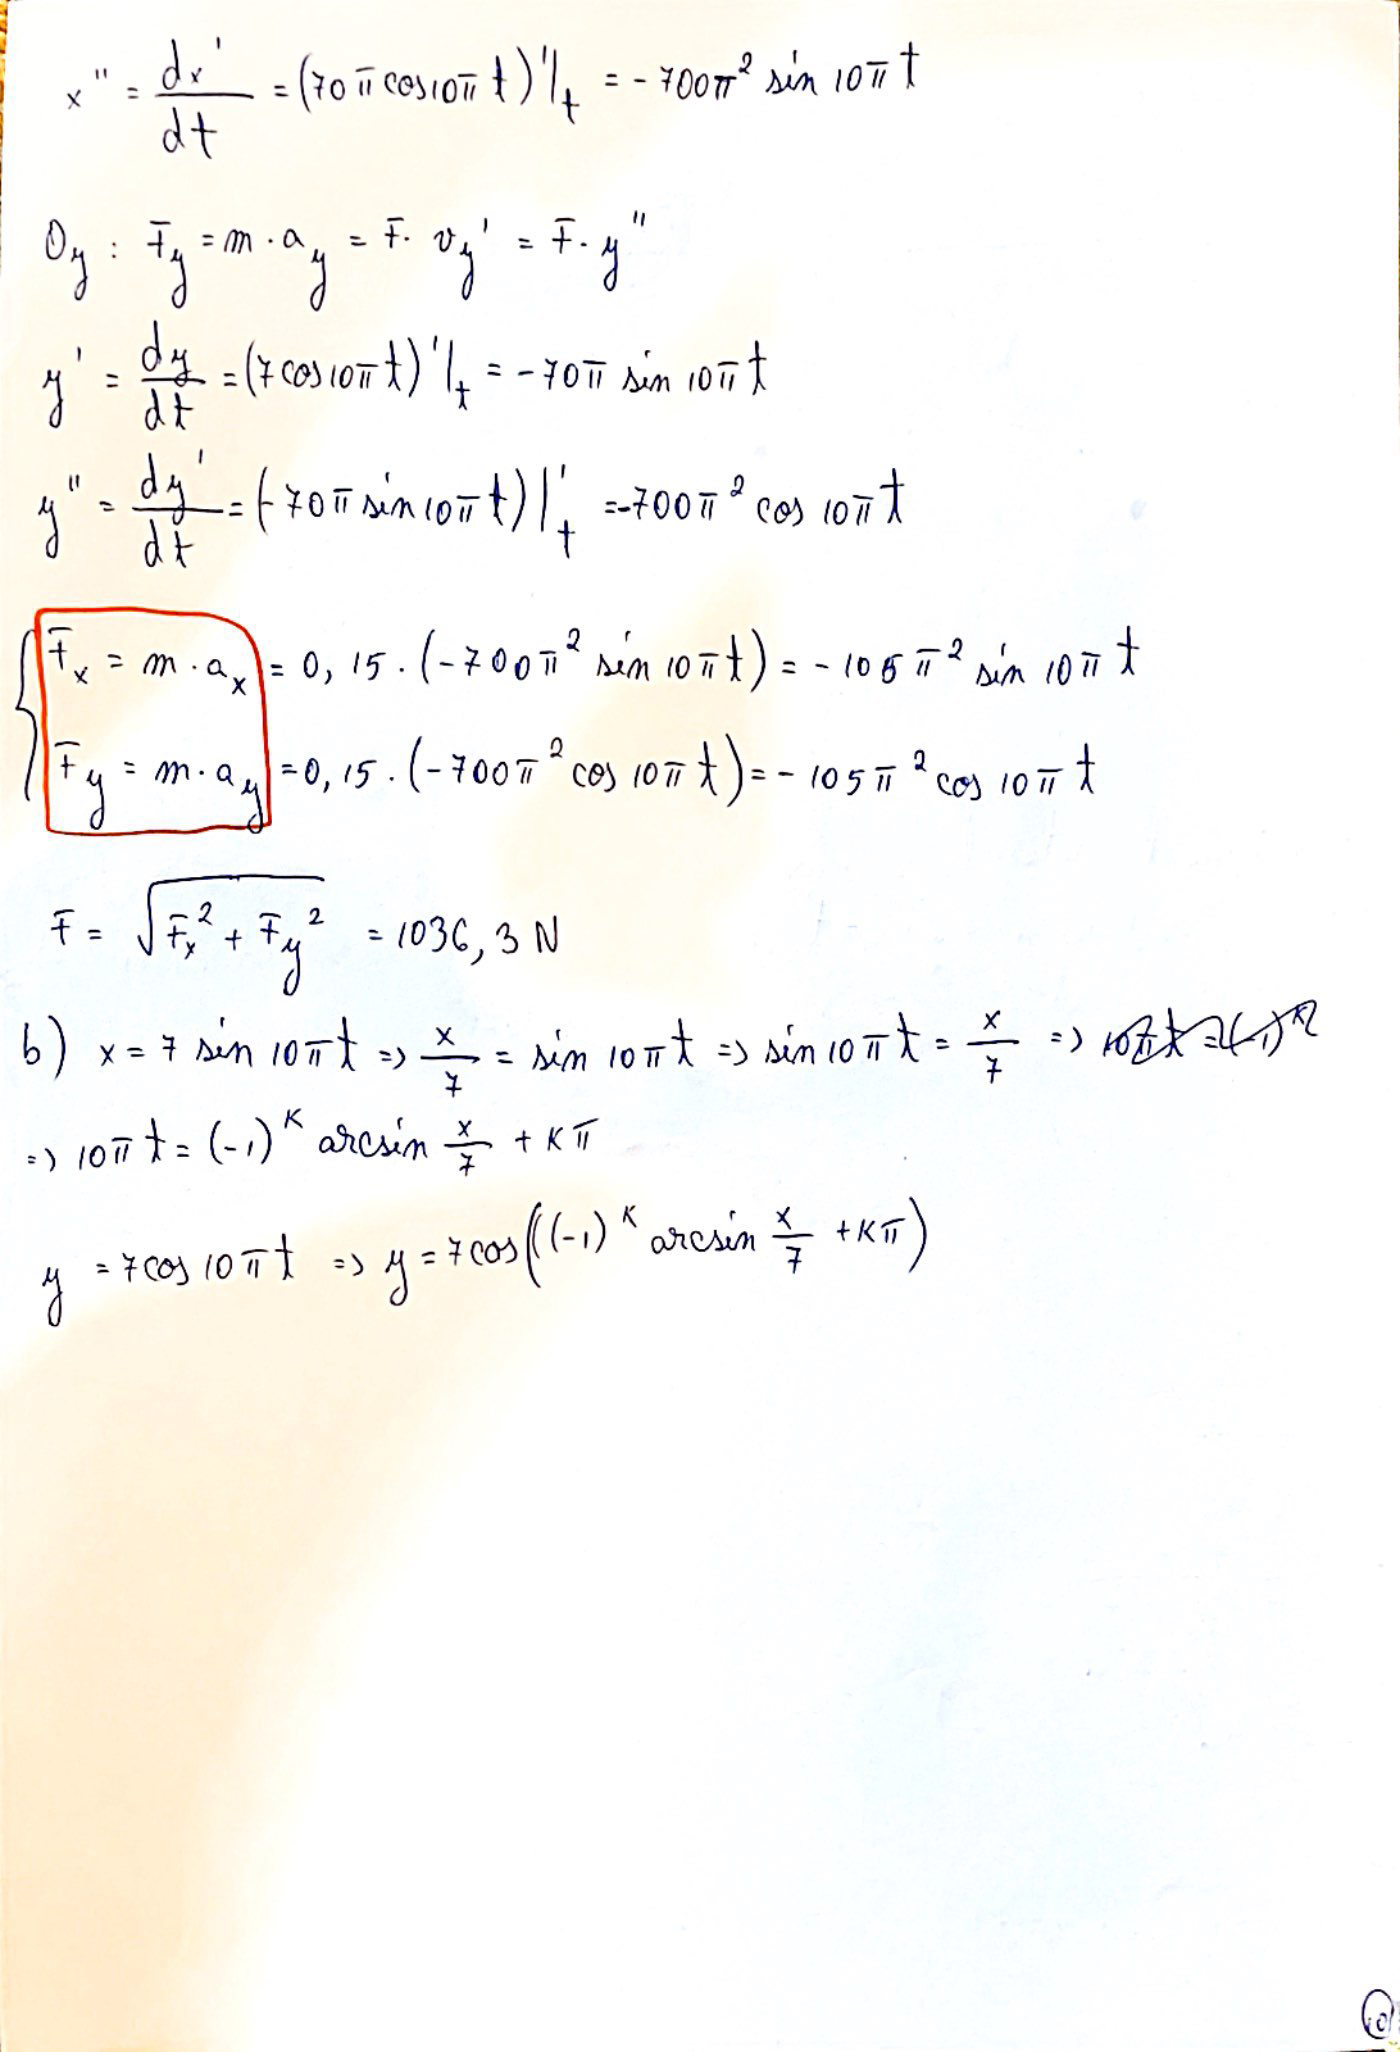 x'' = dx'/dt = (70π cos10π t)'|t = - 700π² sin 10π t
Oy : Fy = m · ay = F · vy' = F · y''
y' = dy/dt = (7 cos 10π t)'|t = - 70π sin 10π t
y'' = dy'/dt = (-70π sin 10π t)|'t = -700π² cos 10π t
{ Fx = m · ax = 0,15 · (-700π² sin 10π t) = - 105π² sin 10π t
Fy = m · ay = 0,15 · (-700π² cos 10π t) = - 105π² cos 10π t
F = √(Fx² + Fy²) = 1036,3 N
b) x = 7 sin 10π t => x/7 = sin 10π t => sin 10π t = x/7 =>
=> 10π t = (-1)^K arcsin x/7 + Kπ
y = 7cos 10π t => y = 7cos((-1)^K arcsin x/7 + Kπ)